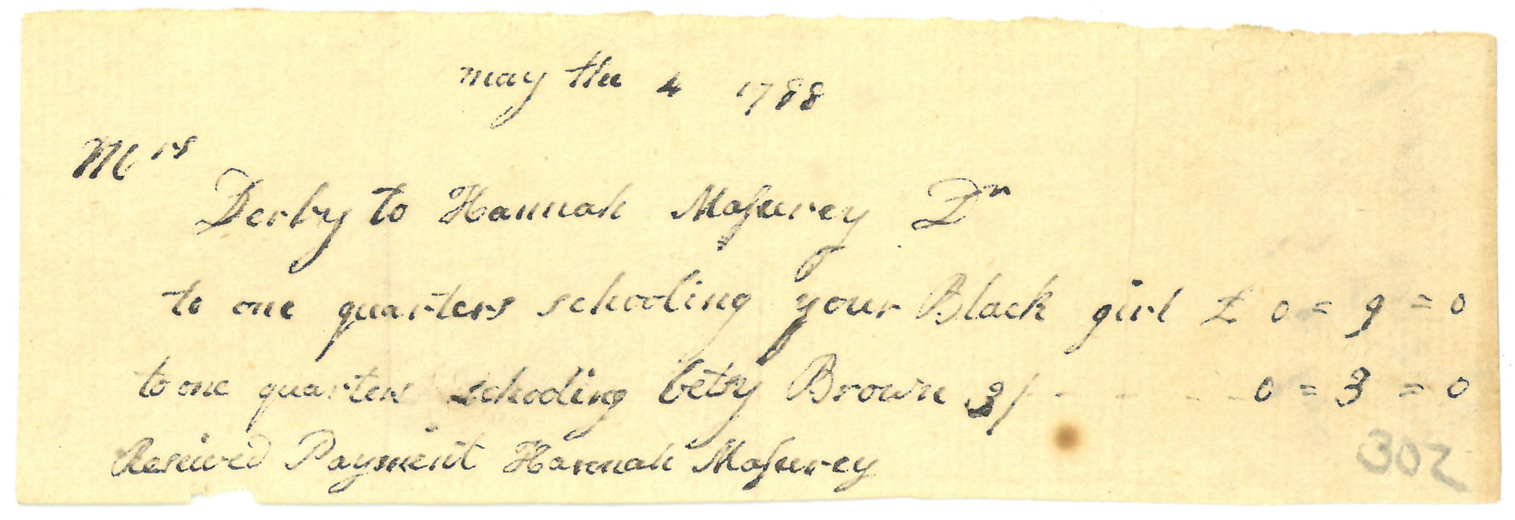 may the 4 1788
Mrs
Derby to Hannah Maſurey Dr
to one quarters schooling your Black girl £ 0 = 9 = 0
to one quarters schooling betsy Brown 3/ - - - - - 0 = 3 = 0
Reseived Payment Hannah Maſurey
302